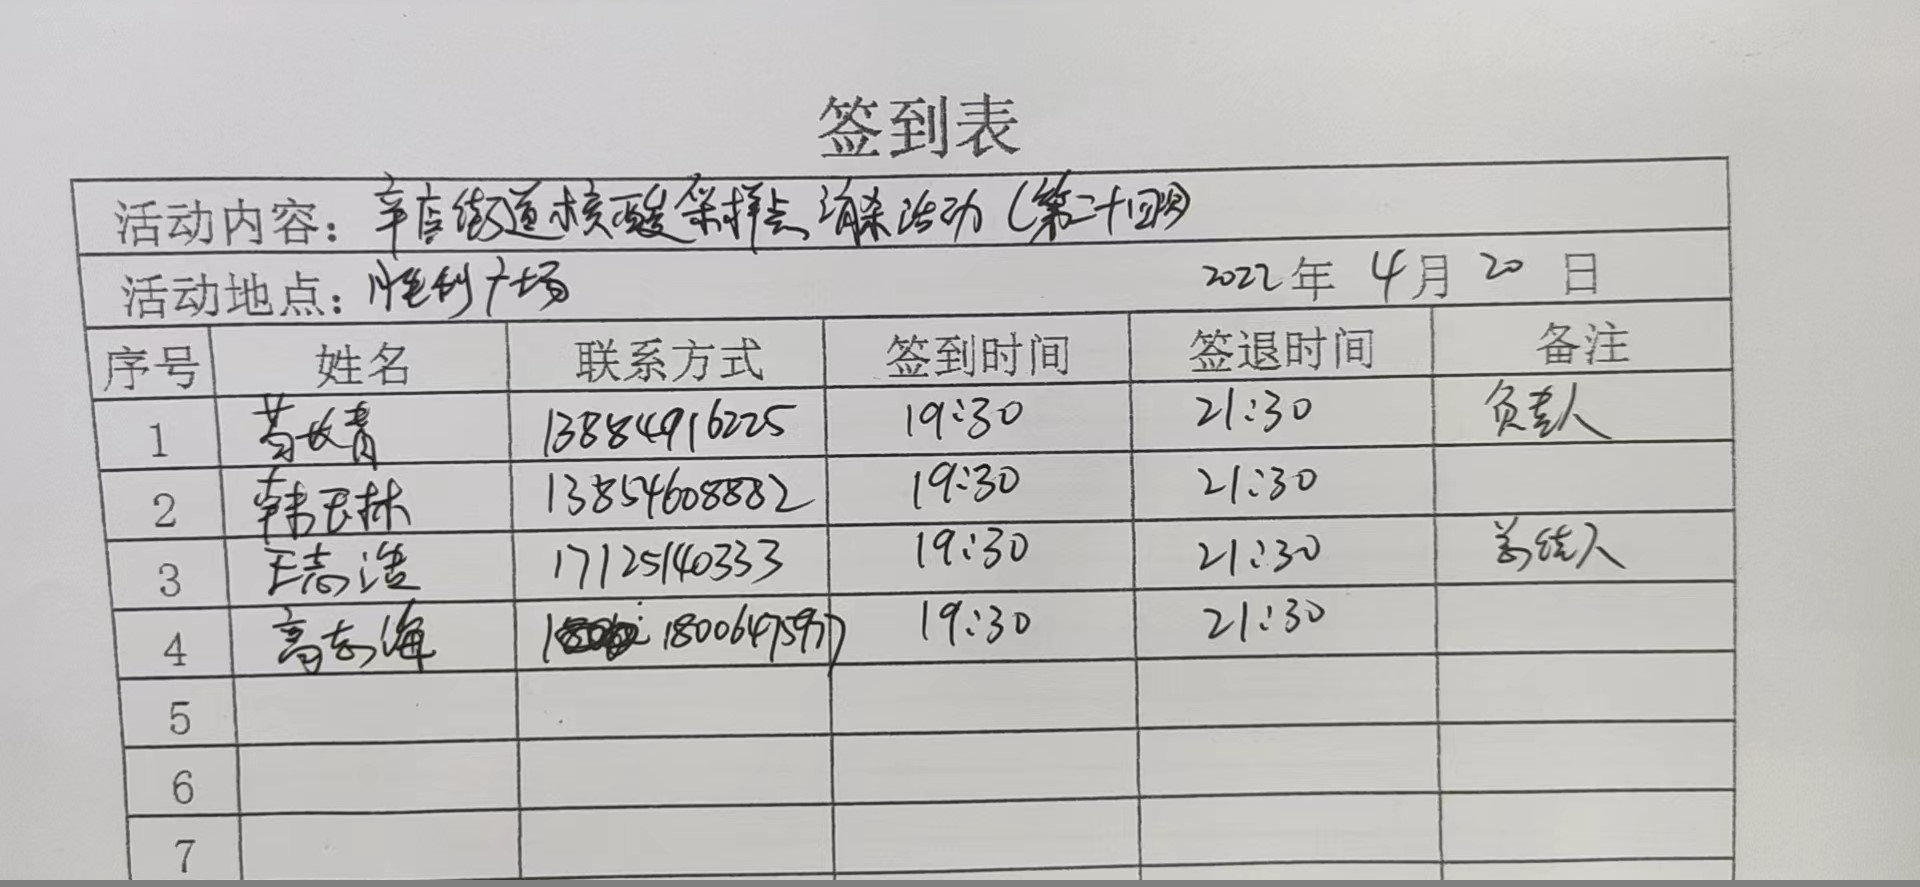 签到表
活动内容：辛店街道核酸采样点消杀活动（第二十四期）
活动地点：胜利广场 2022年 4月 20 日
序号 姓名 联系方式 签到时间 签退时间 备注
1 13884916225 19:30 21:30 负责人
2 韩玉林 13854608882 19:30 21:30
3 王志浩 17125140333 19:30 21:30 总结人
4 高志海 18006475977 19:30 21:30
5
6
7